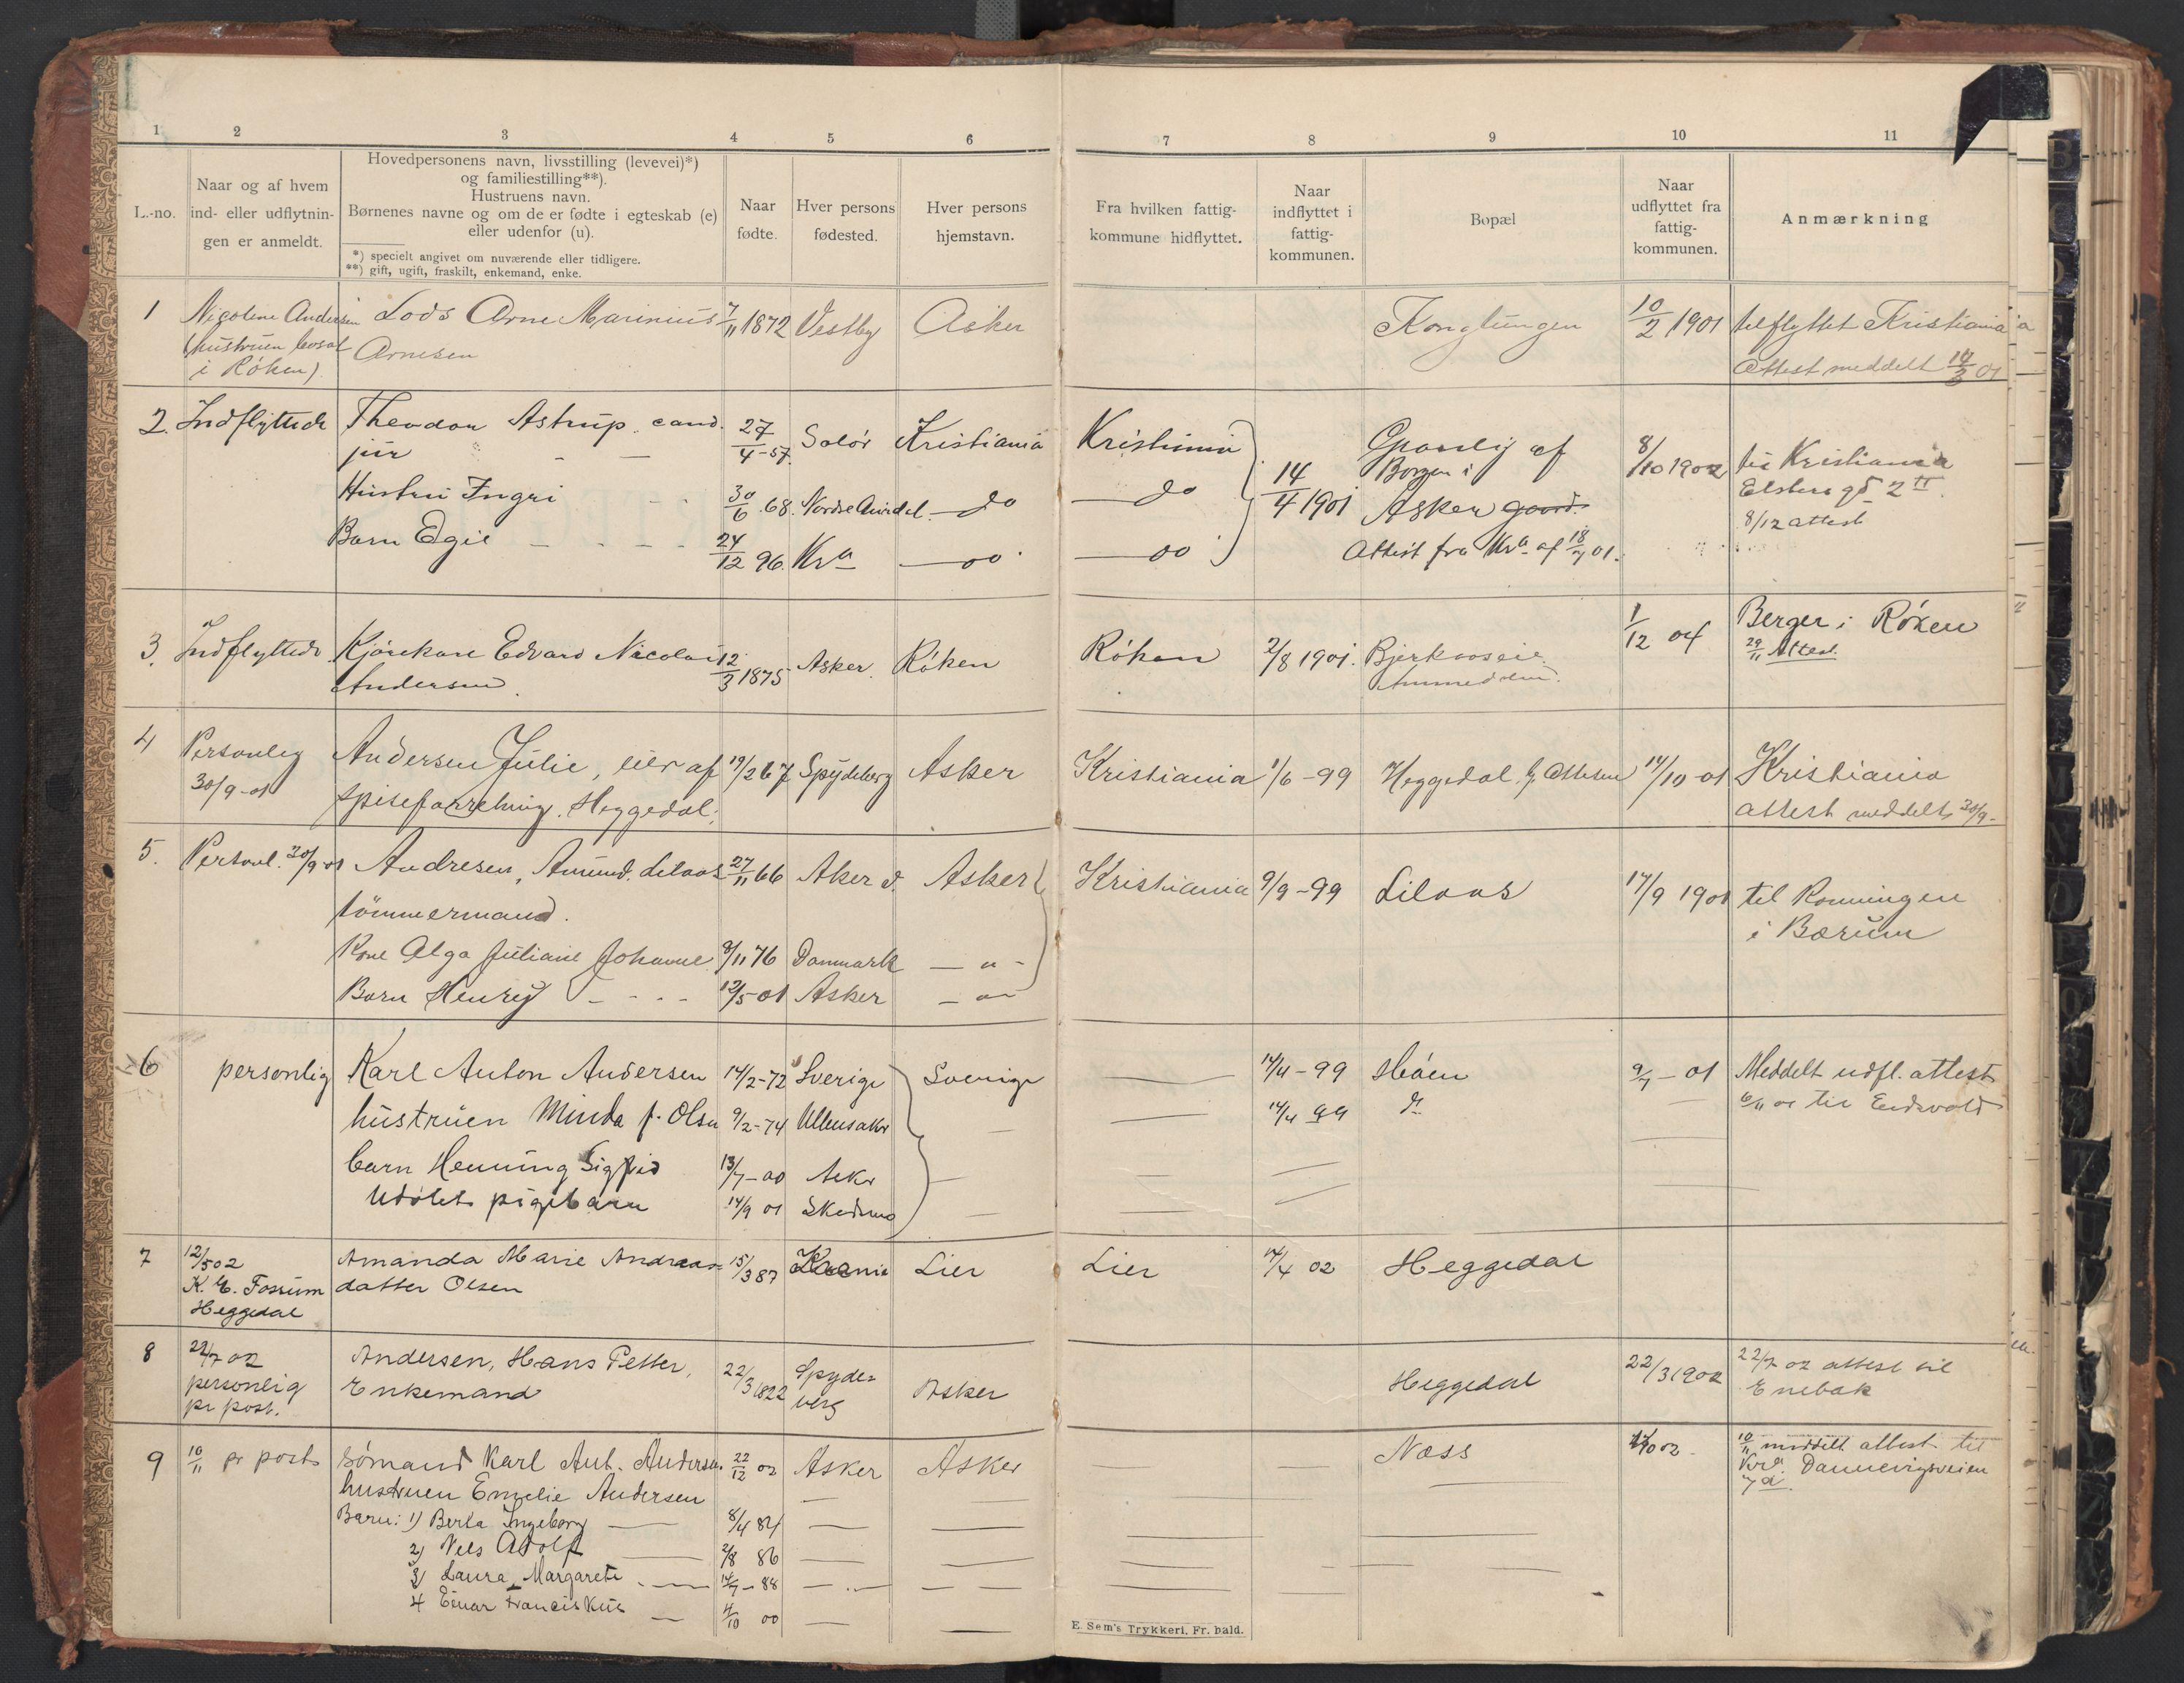 1 2 3 4 5 6 7 8 9 10 11
L.-no.
Naar og af hvem
ind- eller udflytnin-
gen er anmeldt.
Hovedpersonens navn, livsstilling (levevei)*)
og familiestilling**).
Hustruens navn.
Børnenes navne og om de er fødte i egteskab (e)
eller udenfor (u).
*) specielt angivet om nuværende eller tidligere.
**) gift, ugift, fraskilt, enkemand, enke.
Naar
fødte.
Hver persons
fødested.
Hver persons
hjemstavn.
Fra hvilken fattig-
kommune hidflyttet.
Naar
indflyttet i
fattig-
kommunen.
Bopæl
Naar
udflyttet fra
fattig-
kommunen.
Anmærkning
1 Nicoline Andersen Lods Arne Marinius 7/11 1872 Vestby Asker Konglungen 10/2 1901 tilflyttet Kristiania
(hustruen bosat Arnesen
i Røken) Attest meddelt 14/3 01
2. Indflyttede Theodor Astrup cand. 27/4-57. Solør Kristiania Kristiania 14/4 1901 af 8/10 1902 til Kristiania
jur Borgen i
Hustru Ingri 30/6 68. Nordre Aurdal do do Asker gaard 2 II
Barn Egil 24/12 96. Kra do do Attest fra Kra af 18/7 01. 8/12 attest
3. Indflyttede Kjørekar Edvard Nicolai 12/3 1875 Asker. Røken Røken 2/8 1901. 1/12 04 Berger i Røken
Andersen 29/11 Attest.
4 Personlig Andersen Julie, eier af 19/2 67 Spydeberg Asker Kristiania 1/6-99 Heggedal 14/10-01 Kristiania
30/9-01 spiseforretning. Heggedal. attest meddelt 30/9-
5. Personl. 30/9-01 Andresen, Amund. Lilaas 27/11 66 Aker Asker Kristiania 9/9-99 Lilaas 17/9 1901 til Ronningen
tømmermand. i Bærum
Kone Olga Juliane Johanne 9/11 76 Danmark - " -
Barn Henry 12/5-01 Asker - " -
6 personlig Karl Anton Andersen 14/2-72 Sverige Sverige 14/4-99 Høen 9/7-01 Meddelt udfl. attest
hustruen Minda f. Olsen 9/2-74 Ullensaker 14/4 99 do 6/11 01 til Eidsvold
barn Henning Sigfrid 13/7-00 Asker
Udøbt pigebarn 14/9 01 Skedsmo
7 12/5 02 Amanda Marie Andreas- 15/3 87 Lier Lier 14/4 02 Heggedal
K. E. Fossum datter Olsen
Heggedal
8 22/7 02 Andersen, Hans Petter, 22/3 1822 Spyde- Asker Heggedal 22/3 1902 22/7 02 attest til
personlig Enkemand berg Enebak
pr post.
9 10/11 pr post Sømand Karl Ant. Andersen. 22/12 02 Asker Asker Næss 02 10/11 meddelt attest til
hustruen Emelie Andersen Kra. Dannevigsveien
Barn: 1) Berta Ingeborg 8/4 84 7 d.
2) Nils Adolf 2/8 86
3) Laura Margarete 14/7-88
4 Einar Franciskus 4/10 00
E. Sem's Trykkeri, Fr. hald.